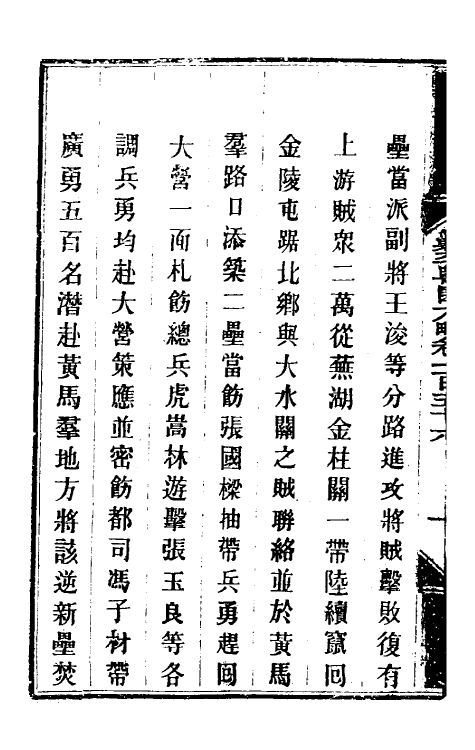 壘當派副將王浚等分路進攻將賊擊敗復有
上游賊衆二萬從蕪湖金柱關一帶陸續竄回
金陵屯踞北鄉與大水關之賊聯絡並於黃馬
羣路口添築二壘當飭張國樑抽帶兵勇趕回
大營一面札飭總兵虎嵩林遊擊張玉良等各
調兵勇均赴大營策應並密飭都司馮子材帶
廣勇五百名潛赴黃馬羣地方將該逆新壘焚